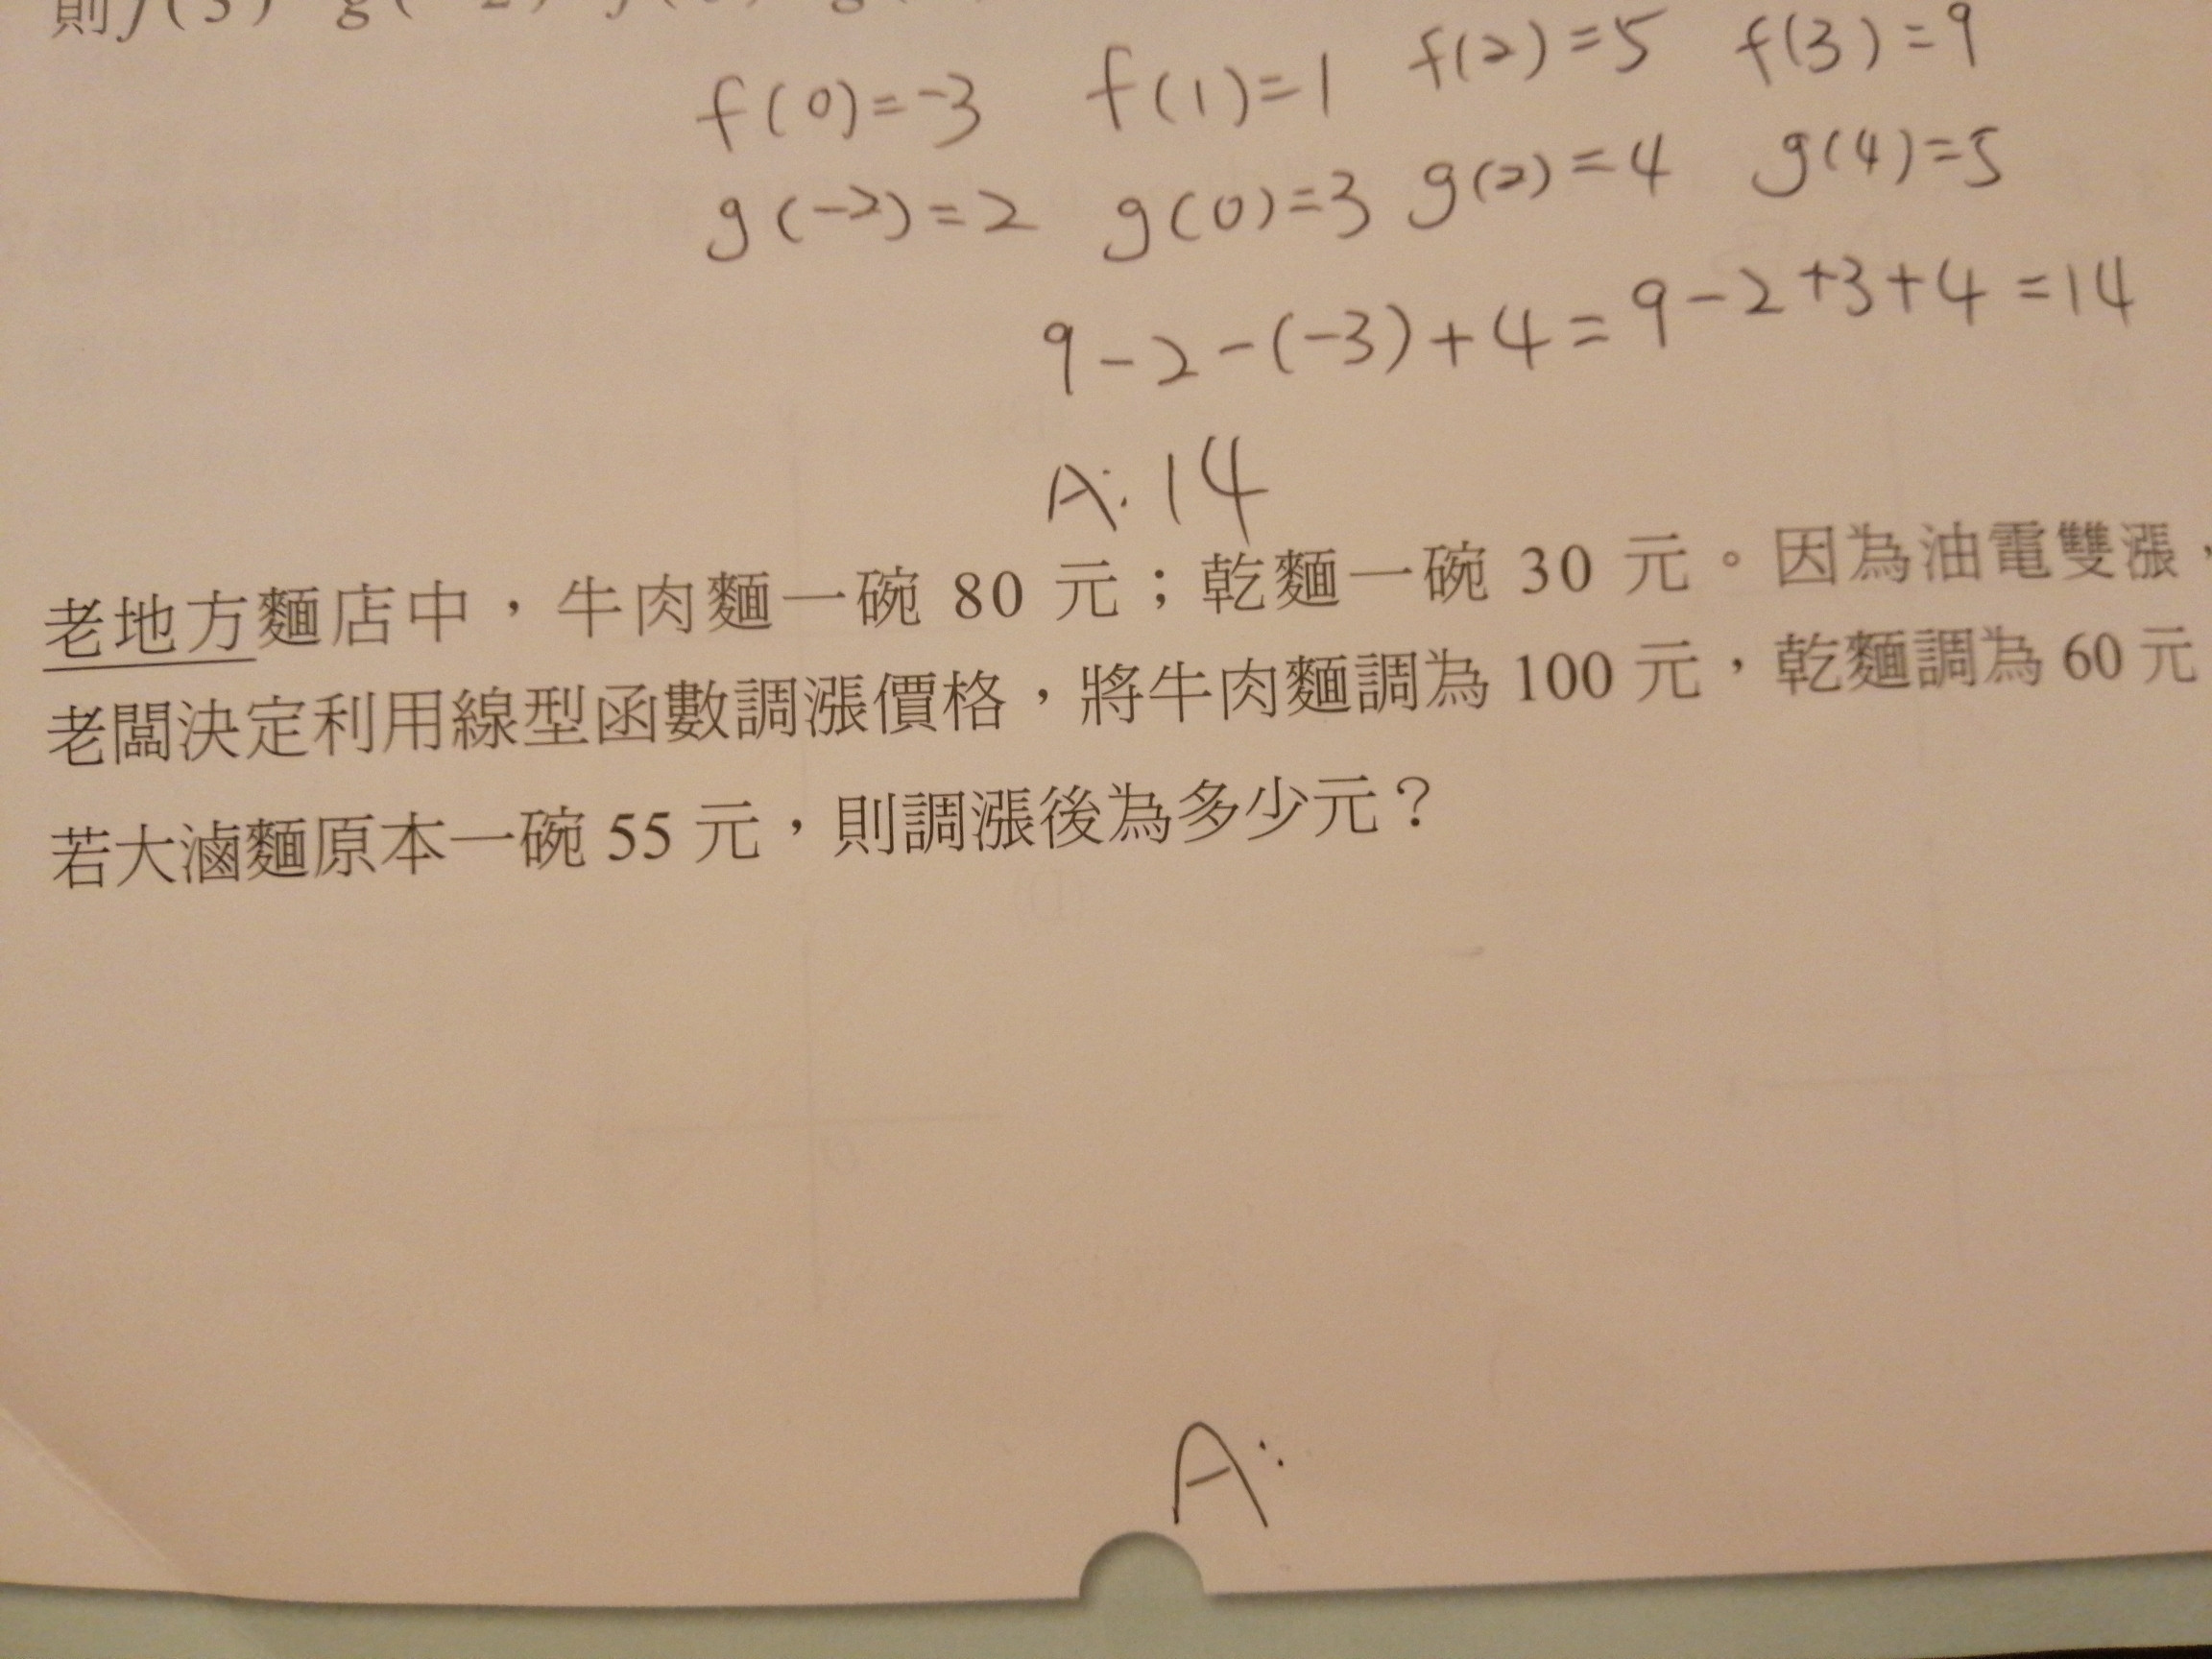 則f(3) g(-2)
f(0)=-3 f(1)=1 f(2)=5 f(3)=9
g(-2)=2 g(0)=3 g(2)=4 g(4)=5
9-2-(-3)+4=9-2+3+4=14
A:14
老地方麵店中，牛肉麵一碗 80 元；乾麵一碗 30 元。因為油電雙漲，
老闆決定利用線型函數調漲價格，將牛肉麵調為 100 元，乾麵調為 60 元
若大滷麵原本一碗 55 元，則調漲後為多少元？
A: